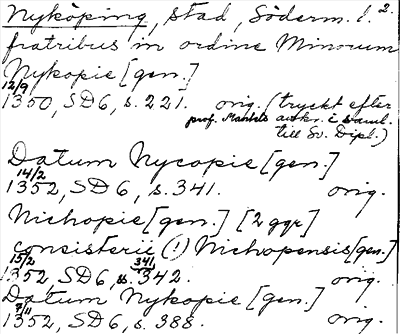 Nyköping, stad, Söderm. l. 2.
fratribus in ordine Minorum
Nykopie [gen.]
12/9
1350, SD 6, s. 221. orig. (tryckt efter
prof. Markels avskr. i saml.
till Sv. Dipl.)
Datum Nycopie [gen.]
14/2
1352, SD 6, s. 341. orig.
Nichopie [gen.] [2 ggr]
consisterii (!) Nichopensis [gen.]
15/2 341,
1352, SD 6, s. 342. orig.
Datum Nykopie [gen.]
7/11
1352, SD 6, s. 388. orig.